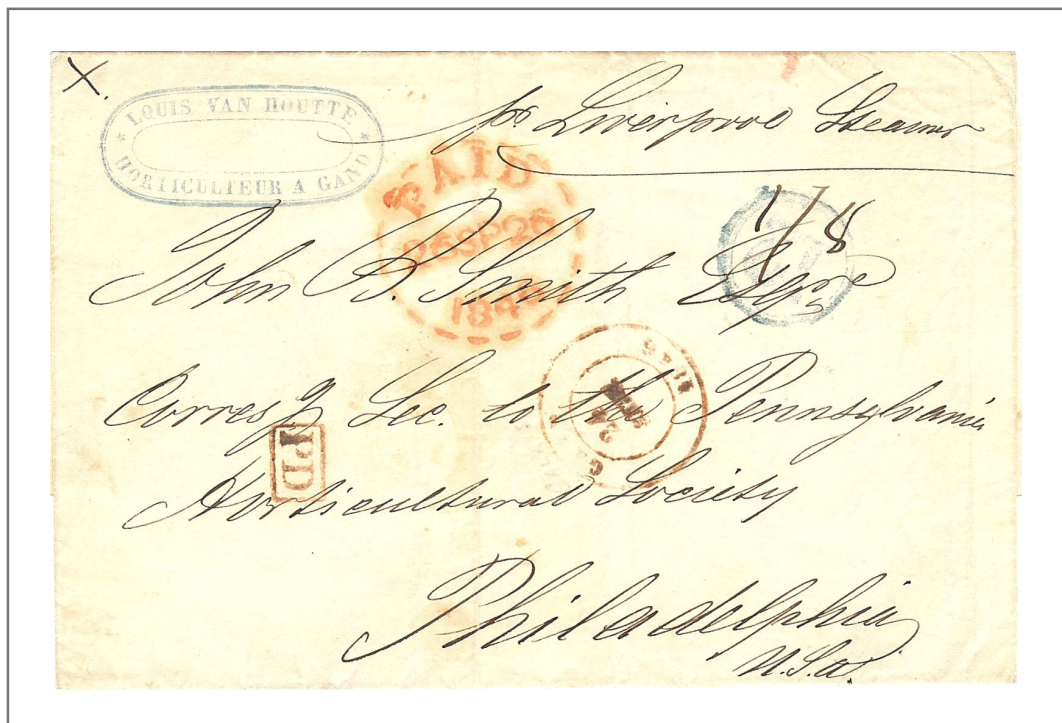 X.
* LOUIS VAN HOUTTE *
HORTICULTEUR A GAND
pr Liverpool Steamer
PAID
26SP26
184
1/8
John B. Smith Esqre
Corresp Sec. to the Pennsylvania
1846
24
PD
Horticultural Society
Philadelphia
U.S.a.